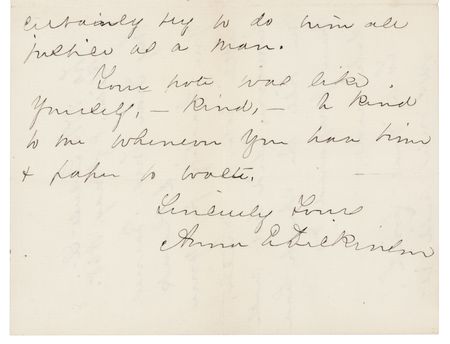 certainly try to do him all
justice as a man.
Your note was like
yourself, – kind, – be kind
to me whenever you have time
& paper to waste.
Sincerely Yours
Anna E Dickinson